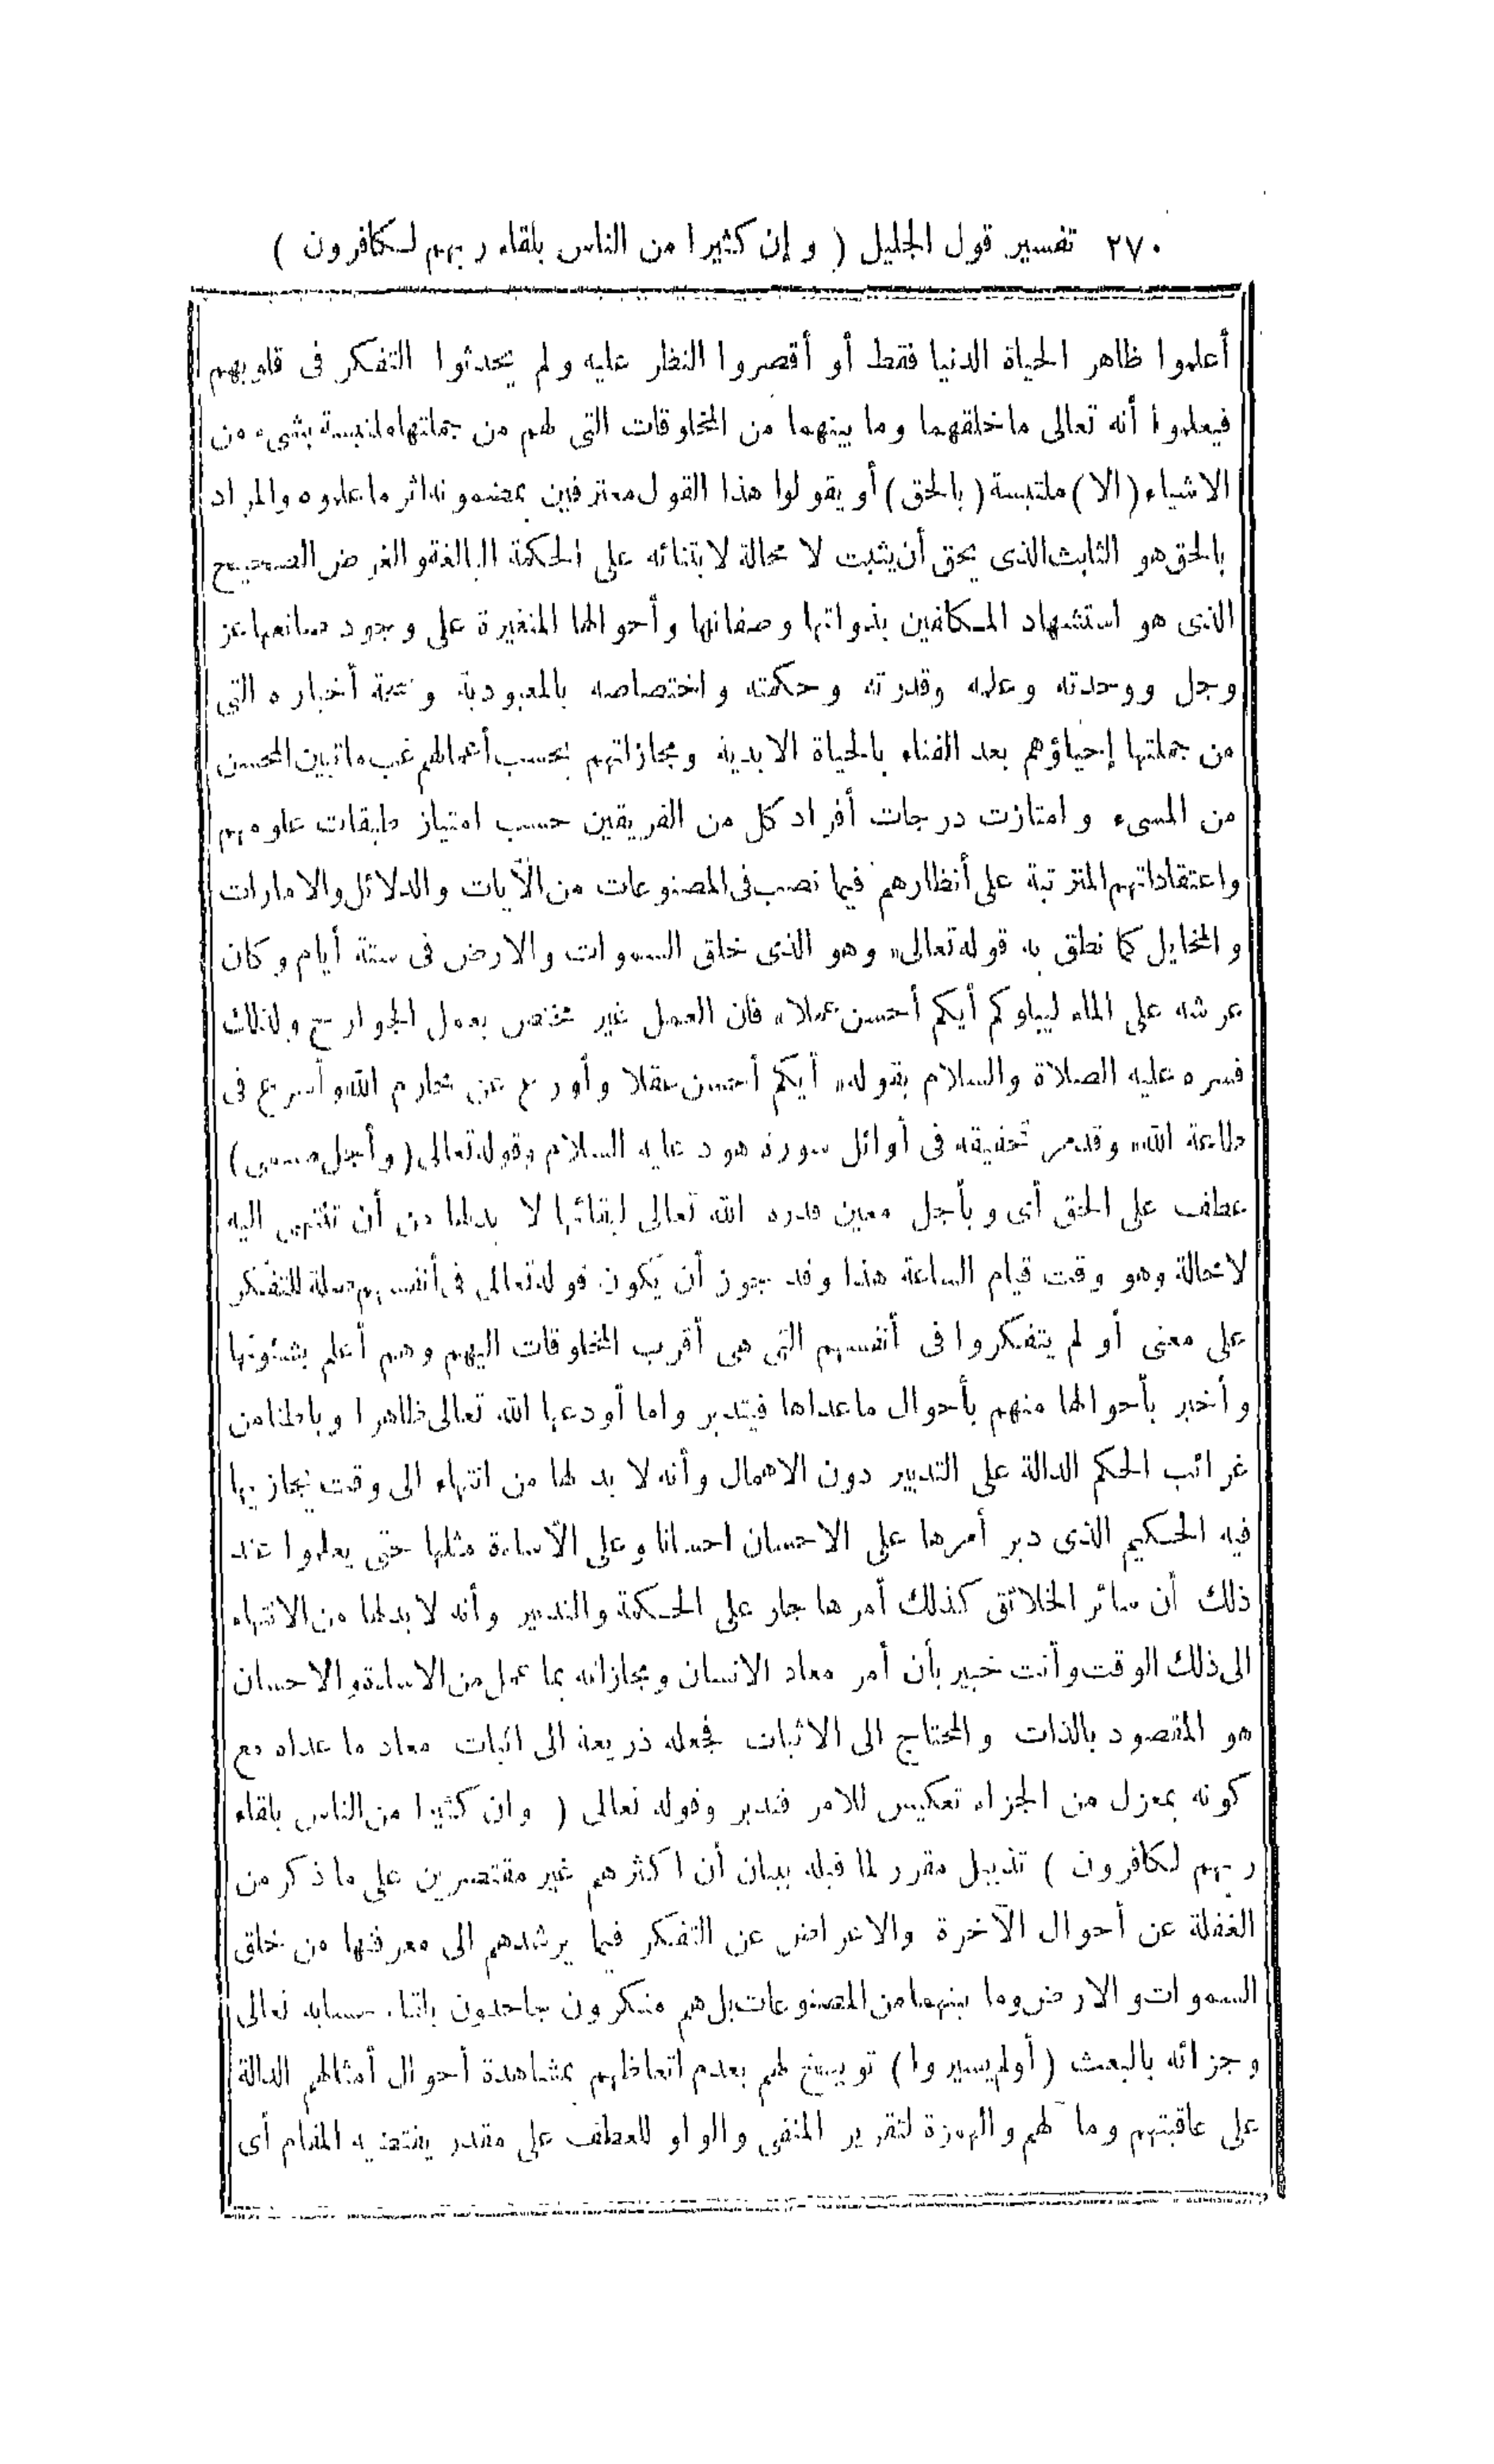 ٢٧٠ تفسير قول الجليل ( وإن كثيرا من الناس بلقاء ربهم لكافرون )
أعلموا ظاهر الحياة الدنيا فقط أو أقصروا النظر عليه ولم يحدثوا التفكر فى قلوبهم
فيعلموا أنه تعالى ما خلقهما وما بينهما من المخلوقات التى هم من جملتها ملتبسة بشىء من
الاشياء (الا) ملتبسة (بالحق) أو يقولوا هذا القول معترفين بمضمونه اثر ما علموه والمراد
بالحق هو الثابت الذى يحق أن يثبت لا محالة لابتنائه على الحكمة البالغة والغرض الصحيح
الذى هو استشهاد المكلفين بذواتها وصفاتها وأحوالها المتغيرة على وجود صانعها عز
وجل ووحدته وعلمه وقدرته وحكمته واختصاصه بالمعبودية وصحة أخباره التى
من جملتها إحياؤهم بعد الفناء بالحياة الابدية ومجازاتهم بحسب أعمالهم غب ما تبين المحسن
من المسىء وامتازت درجات أفراد كل من الفريقين حسب امتياز طبقات علومهم
واعتقاداتهم المترتبة على أنظارهم فيما نصب فى المصنوعات من الآيات والدلائل والامارات
والمخايل كما نطق به قوله تعالى «وهو الذى خلق السموات والارض فى ستة أيام وكان
عرشه على الماء ليبلوكم أيكم أحسن عملا» فان العمل غير مختص بعمل الجوارح ولذلك
فسره عليه الصلاة والسلام بقوله «أيكم أحسن عقلا وأورع عن محارم الله وأسرع فى
طاعة الله» وقد مر تحقيقه فى أوائل سورة هود عليه السلام وقوله تعالى (وأجل مسمى)
عطف على الحق أى وبأجل معين قدره الله تعالى لبقائها لا بد لها من أن تنتهى اليه
لا محالة وهو وقت قيام الساعة هذا وقد جوز أن يكون قوله تعالى فى أنفسهم صلة للتفكر
على معنى أو لم يتفكروا فى أنفسهم التى هى أقرب المخلوقات اليهم وهم أعلم بشئونها
وأخبر بأحوالها منهم بأحوال ما عداها فيتدبروا ما أودعها الله تعالى ظاهرا وباطنا من
غرائب الحكم الدالة على التدبير دون الاهمال وأنه لا بد لها من انتهاء الى وقت يجازيها
فيه الحكيم الذى دبر أمرها على الاحسان احسانا وعلى الاساءة مثلها حتى يعلموا عند
ذلك أن سائر الخلائق كذلك أمرها جار على الحكمة والتدبير وأنه لا بد لها من الانتهاء
الى ذلك الوقت وأنت خبير بأن أمر معاد الانسان ومجازاته بما عمل من الاساءة والاحسان
هو المقصود بالذات والمحتاج الى الاثبات فجعله ذريعة الى اثبات معاد ما عداه مع
كونه بمعزل من الجزاء تعكيس للامر فتدبر وقوله تعالى ( وان كثيرا من الناس بلقاء
ربهم لكافرون ) تذييل مقرر لما قبله ببيان أن أكثرهم غير مقتصرين على ما ذكر من
الغفلة عن أحوال الآخرة والاعراض عن التفكر فيما يرشدهم الى معرفتها من خلق
السموات والارض وما بينهما من المصنوعات بل هم منكرون جاحدون بلقاء حسابه تعالى
وجزائه بالبعث (أو لم يسيروا) توبيخ لهم بعدم اتعاظهم بمشاهدة أحوال أمثالهم الدالة
على عاقبتهم وما لهم والهمزة لتقرير المنفى والواو للعطف على مقدر يقتضيه المقام أى